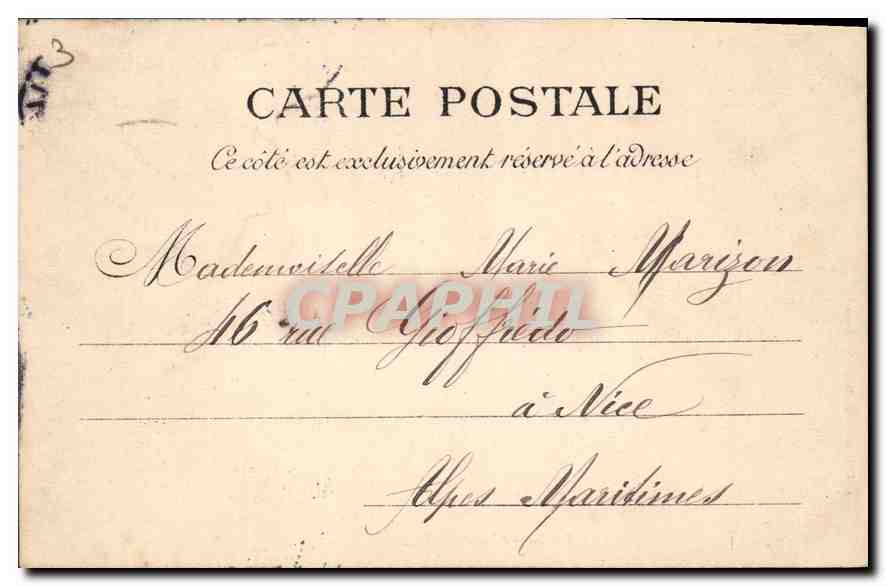 3
CARTE POSTALE
Ce côté est exclusivement réservé à l'adresse
Mademoiselle Marie Marizon
46 rue Gioffrédo
à Nice
Alpes Maritimes
CPAPHIL